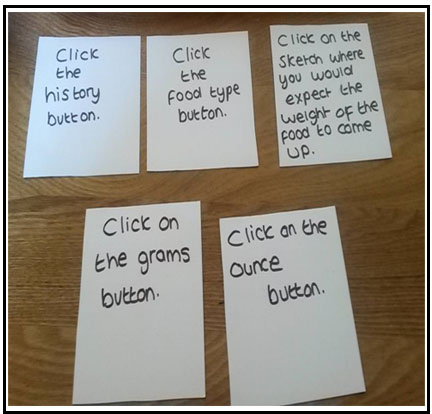 Click
the
history
button.
Click
the
food type
button.
Click on the
sketch where
you would
expect the
weight of the
food to come
up.
Click on
the grams
button.
Click on the
ounce
button.